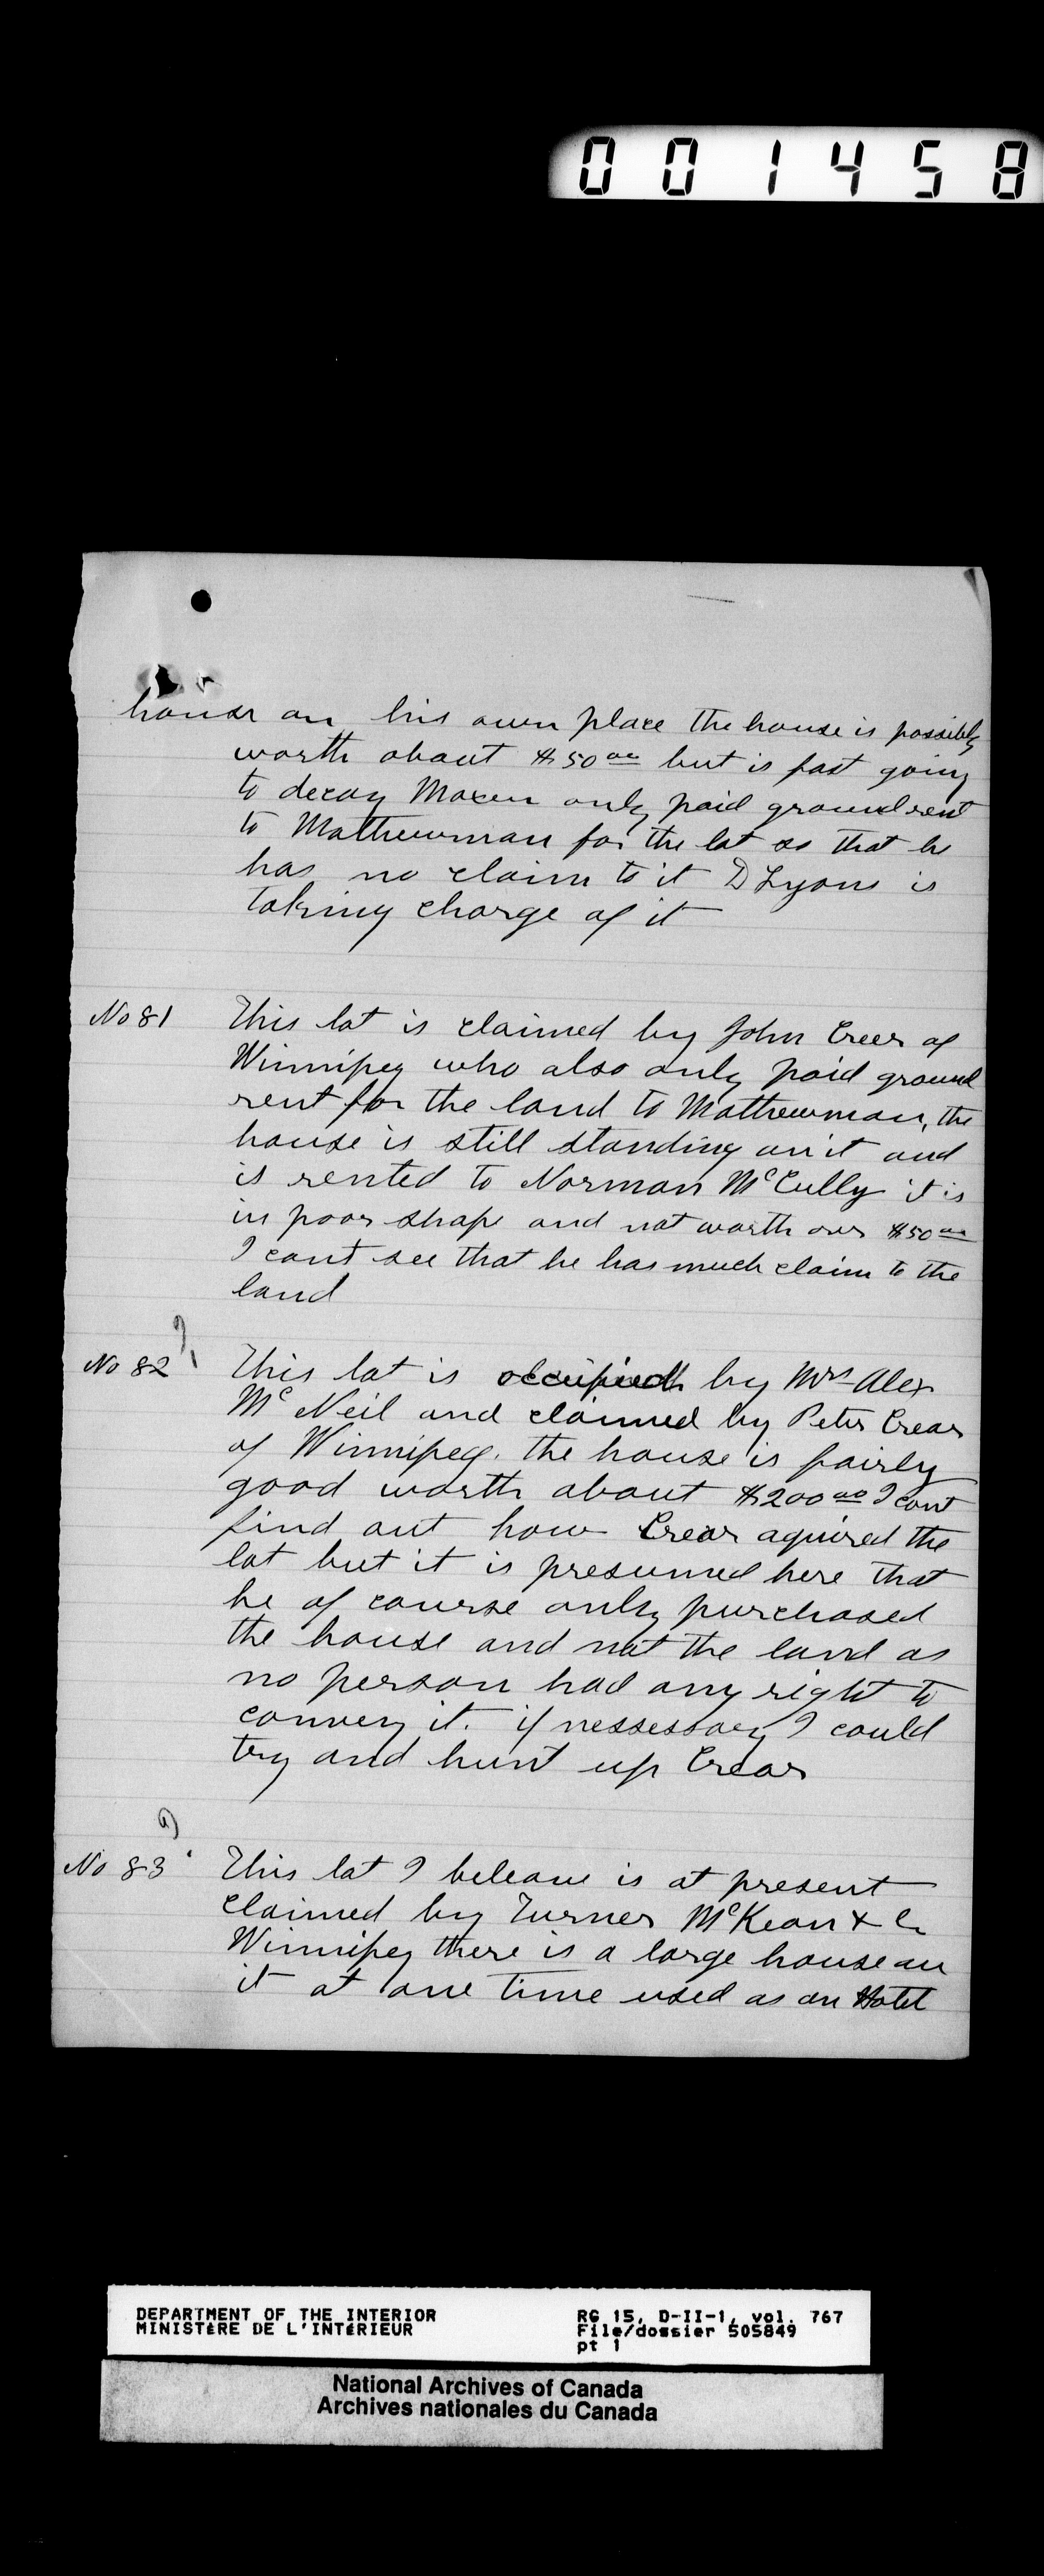 001458
house on his own place the house is possibly
worth about $50 00 but is fast going
to decay Moxen only paid ground rent
to Mathewman for the lot so that he
has no claim to it D Lyons is
taking charge of it
No 81 This lot is claimed by John Creer of
Winnipeg who also only paid ground
rent for the land to Mathewman, the
house is still standing on it and
is rented to Norman McCully it is
in poor shape and not worth over $50 00
I cant see that he has much claim to the
land
No 82 This lot is occupied by Mrs Alex
McNeil and claimed by Peter Crear
of Winnipeg. the house is fairly
good worth about $200 00 I cant
find out how Crear aquired the
lot but it is presumed here that
he of course only purchased
the house and not the land as
no person had any right to
convey it. if nessessary I could
try and hunt up Crear
No 83 This lot I beleave is at present
claimed by Turner McKean & Co
Winnipeg there is a large house on
it at one time used as an Hotel
DEPARTMENT OF THE INTERIOR
MINISTÈRE DE L'INTÉRIEUR
RG 15, D-II-1, vol. 767
File/dossier 505849
pt 1
National Archives of Canada
Archives nationales du Canada